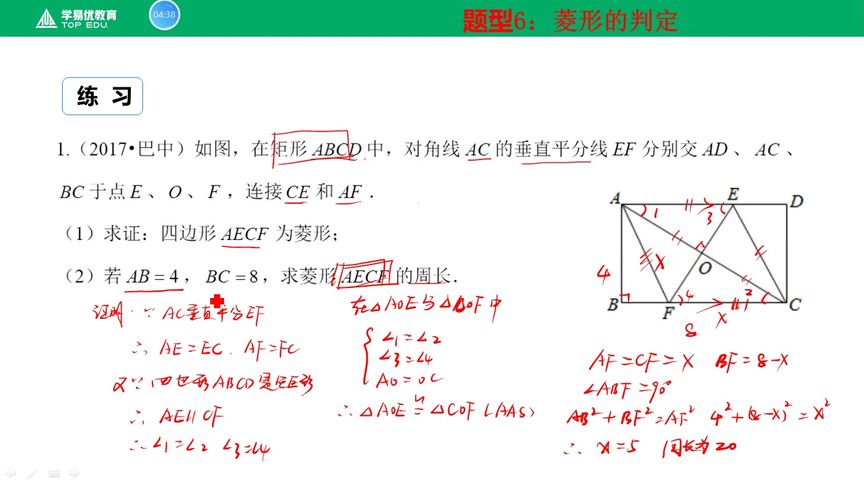 学易优教育
TOP EDU.
04:38
题型6：菱形的判定
练 习
1.（2017•巴中）如图，在矩形 ABCD 中，对角线 AC 的垂直平分线 EF 分别交 AD 、 AC 、
BC 于点 E 、 O 、 F ，连接 CE 和 AF ．
（1）求证：四边形 AECF 为菱形；
（2）若 AB = 4 ， BC = 8 ，求菱形 AECF 的周长．
A E D
1 3
O
4 X
4 2
B F C
8 X
证明：∵ AC垂直平分EF
∴ AE=EC. AF=FC
又∵四边形ABCD是矩形
∴ AE∥CF
∴ ∠1=∠2 ∠3=∠4
在△AOE与△COF中
∠1=∠2
∠3=∠4
AO=OC
∴ △AOE≌△COF (AAS)
AF=CF=X BF=8-X
∠ABF=90°
AB²+BF²=AF² 4²+(8-X)²=X²
∴ X=5 周长为20